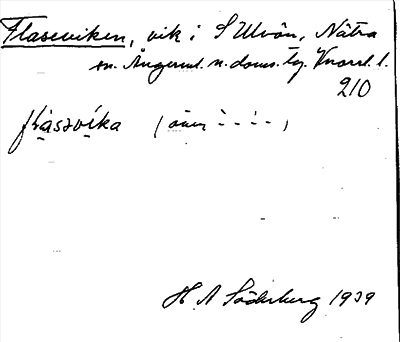 Flaseviken, vik i S Ulvön, Nätra
sn. Ångerml. n. doms. tg. Vnorrl. l.
210
H A Söderberg 1939